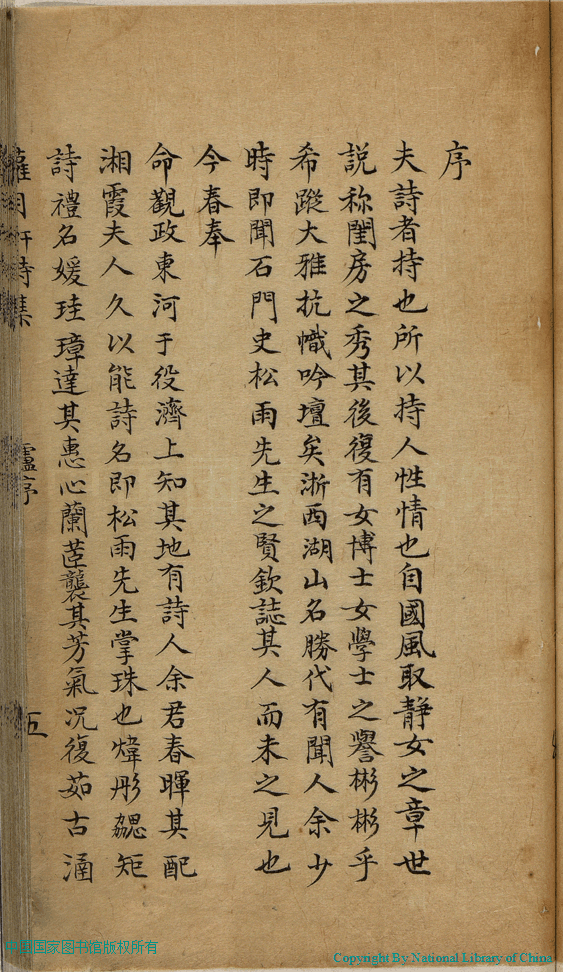 序
夫詩者持也所以持人性情也自國風取靜女之章世
説称閨房之秀其後復有女博士女學士之譽彬彬乎
希蹤大雅抗幟吟壇矣浙西湖山名勝代有聞人余少
時即聞石門史松雨先生之賢欽誌其人而未之見也
今春奉
命觀政東河于役濟上知其地有詩人余君春暉其配
湘霞夫人久以能詩名即松雨先生掌珠也煒彤勰矩
詩禮名媛珪璋達其惠心蘭茝襲其芳氣况復茹古涵
月軒詩集
序
五
中国国家图书馆版权所有
Copyright By National Library of China